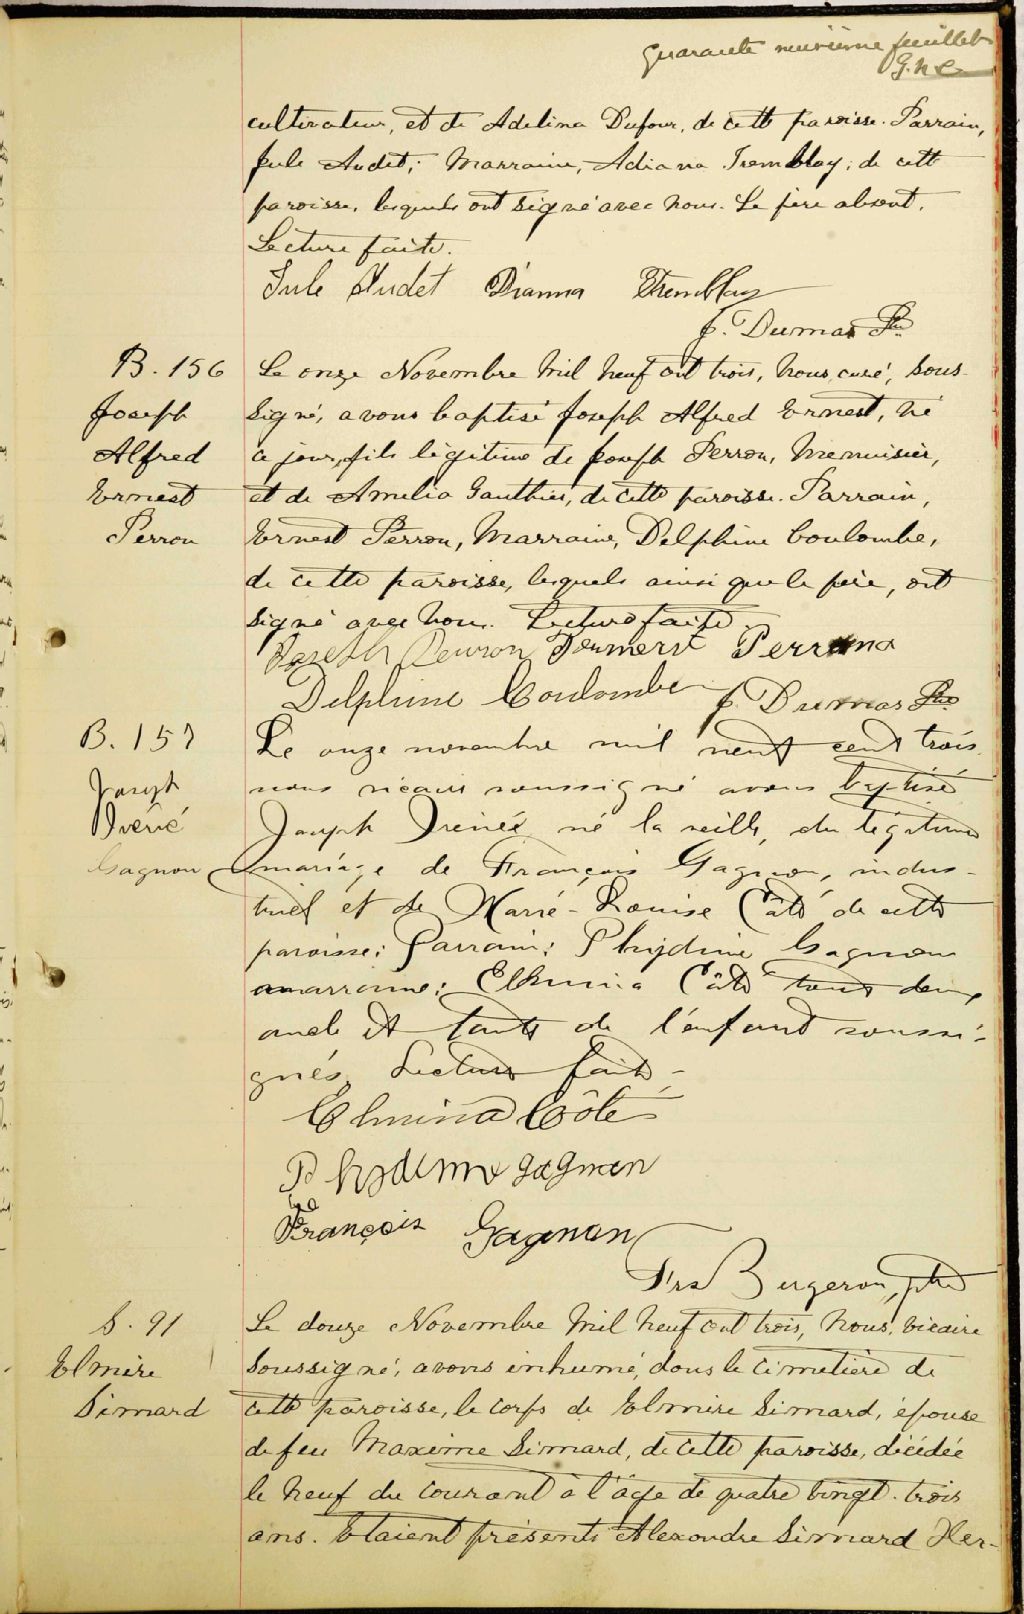 quarante neuvième feuillet
cultivateur, et de Adelina Dufour, de cette paroisse. Parrain,
Jule Audet; Marraine, Adiana Tremblay, de cette
paroisse, lesquels ont signé avec nous. Le père absent.
Lecture faite.
Jule Audet Dianna Tremblay
J. Dumas Ptre
B. 156
Joseph
Alfred
Ernest
Perron
Le onze Novembre Mil neuf cent trois, nous, curé, sous-
signé, avons baptisé Joseph Alfred Ernest, né
ce jour, fils légitime de Joseph Perron, Menuisier,
et de Amelia Gauthier, de cette paroisse. Parrain,
Ernest Perron, Marraine, Delphine Coulombe,
de cette paroisse, lesquels ainsi que le père, ont
signé avec nous. Lecture faite.
Joseph Perron Perron
Delphine Coulombe J. Dumas Ptre
B. 157
Joseph
Irénée
Gagnon
Le onze novembre mil neuf cent trois
nous vicaire soussigné avons baptisé
Joseph Irénée né la veille, du légitime
mariage de François Gagnon, indus-
triel et de Marie-Louise Côté de cette
paroisse: Parrain: Phydime Gagnon
marraine: Elmina Côté tous deux
oncle et tante de l'enfant soussi-
gnés. Lecture faite.
Elmina Côté
Phydime gagnon
François Gagnon
Frs Bergeron, ptre
S. 91
Elmire
Simard
Le douze Novembre Mil neuf cent trois, Nous, vicaire
soussigné, avons inhumé, dans le cimetière de
cette paroisse, le corps de Elmire Simard, épouse
de feu Maxime Simard, de cette paroisse, décédée
le neuf du courant à l'âge de quatre vingt-trois
ans. Etaient présents Alexandre Simard Her-